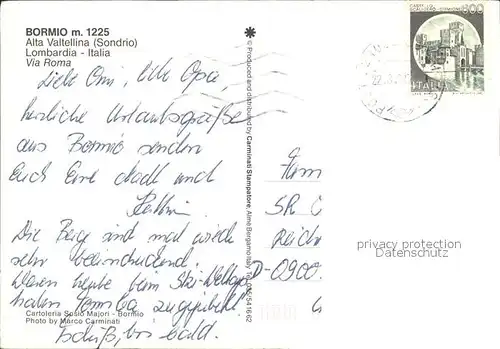 BORMIO m. 1225
Alta Valtellina (Sondrio)
Lombardia - Italia
Via Roma
Liebe Omi, liebe Opa,
herzliche Urlaubsgrüße
aus Bormio senden
Euch Eure und
Die Berge sind mal wieder
sehr beeindruckend.
Waren heute beim Ski-Weltcup
haben Tomba zugejubelt.
Tschüß, bis bald.
Cartoleria Sosio Majori - Bormio
Photo by Marco Carminati
© Produced and distributed by Carminati Stampatore, Almè Bergamo-Italy Tel. 035/541662
800
ITALIA
Fam
SR
Reiche
D-0900
privacy protection
Datenschutz